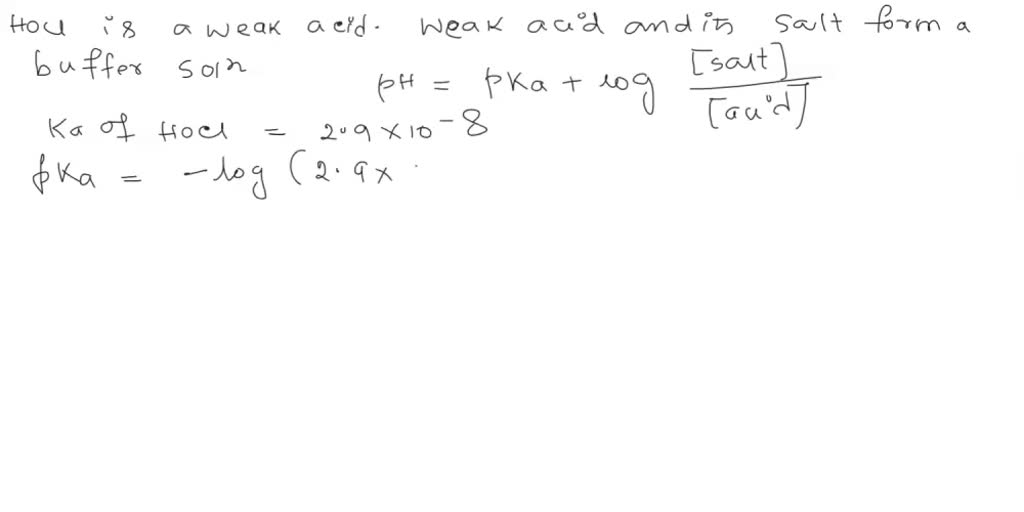 HOCl is a weak acid. Weak acid and its salt form a
buffer soln
pH = pKa + log [salt] / [acid]
Ka of HOCl = 2.9 × 10⁻⁸
pKa = -log (2.9 ×